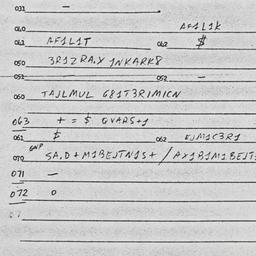 031 —
040 AF1L1K
041 AF1L1T 042 $
050 3R1ZRA.Y 1NKARK8
051 — 052 —
060 TAJLMUL G81T3R1M1CN
063 + = $ QVARS+1
061 $ 062 EJM1C3R1
070 GNP SA.D+M1BEJTN1S+/AX1B1M1BEJT
071 —
072 0